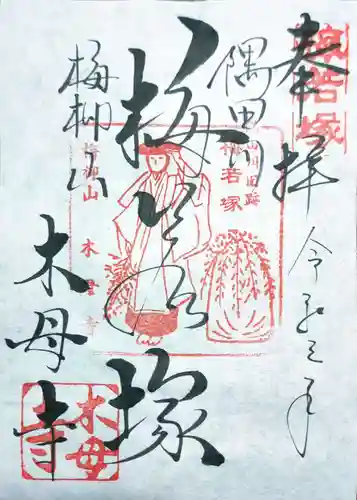 奉拝
令和三年
隅田川
梅若塚
梅柳山
木母寺
梅若塚
隅田川旧跡
梅若塚
梅柳山 木母寺
木母寺